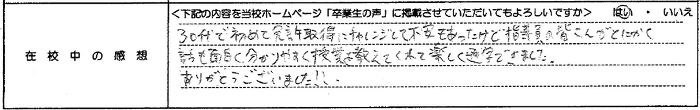 <下記の内容を当校ホームページ「卒業生の声」に掲載させていただいてもよろしいですか> はい ・ いいえ
在校中の感想
30代で初めて免許取得にチャレンジして不安もあったけど指導員の皆さんがとにかく
話も面白く分かりやすく授業を教えてくれて楽しく通学できました。
ありがとうございました!!